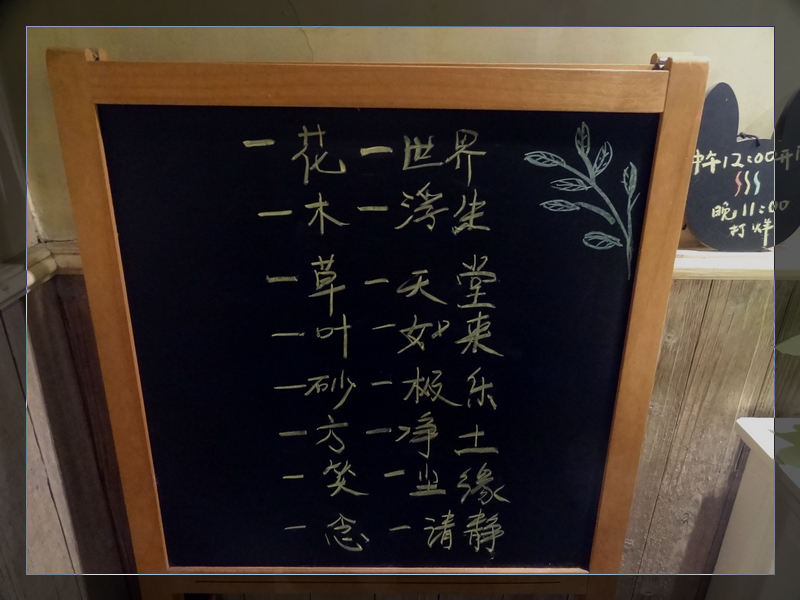 一花一世界
一木一浮生
一草一天堂
一叶一如来
一砂一极乐
一方一净土
一笑一尘缘
一念一清静
中午12:00开门
晚11:00
打烊